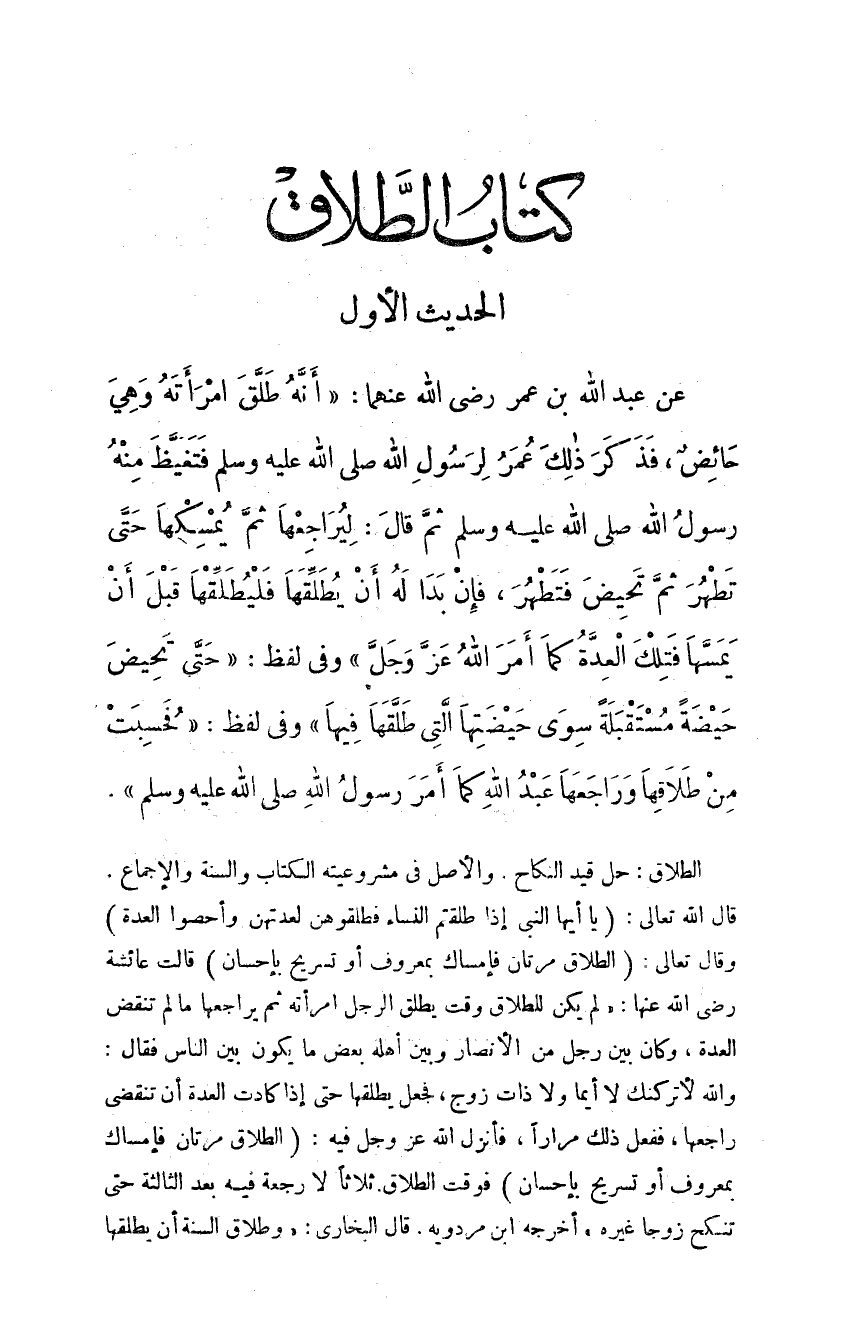 كتابُ الطَّلاقِ
الحديث الأول
عن عبد الله بن عمر رضى الله عنهما : « أَنَّهُ طَلَّقَ امْرَأَتَهُ وَهِيَ
حَائِضٌ ، فَذَكَرَ ذٰلِكَ عُمَرُ لِرَسُولِ الله صلى الله عليه وسلم فَتَغَيَّظَ مِنْهُ
رسولُ الله صلى الله عليه وسلم ثمَّ قالَ : لِيُرَاجِعْهاَ ثمَّ يُمْسِكْهاَ حَتَّى
تَطْهُرَ ثمَّ تَحِيضَ فَتَطْهُرَ ، فإِنْ بَدَا لَهُ أَنْ يُطَلِّقَهَا فَلْيُطَلِّقْهَا قَبْلَ أَنْ
يَمَسَّهاَ فَتِلْكَ الْعِدَّةُ كمَا أَمَرَ اللهُ عَزَّ وَجَلَّ » وفى لفظ : « حَتَّى تَحِيضَ
حَيْضَةً مُسْتَقْبَلَةً سِوَى حَيْضَتِهاَ الَّتِى طَلَّقَهَا فِيهاَ » وفى لفظ : « فَحُسِبَتْ
مِنْ طَلَاقِهاَ وَرَاجَعَهاَ عَبْدُ اللهِ كمَا أَمَرَ رسولُ اللهِ صلى الله عليه وسلم » .
الطلاق : حل قيد النكاح . والأصل فى مشروعيته الكتاب والسنة والإجماع .
قال الله تعالى : ( يا أيها النبي إذا طلقتم النساء فطلقوهن لعدتهن وأحصوا العدة )
وقال تعالى : ( الطلاق مرتان فإمساك بمعروف أو تسريح بإحسان ) قالت عائشة
رضى الله عنها : « لم يكن للطلاق وقت يطلق الرجل امرأته ثم يراجعها مالم تنقض
العدة ، وكان بين رجل من الأنصار وبين أهله بعض ما يكون بين الناس فقال :
والله لأتركنك لا أيما ولا ذات زوج ، فجعل يطلقها حتى إذا كادت العدة أن تنقضى
راجعها ، ففعل ذلك مراراً ، فأنزل الله عز وجل فيه : ( الطلاق مرتان فإمساك
بمعروف أو تسريح بإحسان ) فوقت الطلاق ثلاثاً لا رجعة فيه بعد الثالثة حتى
تنكح زوجا غيره » أخرجه ابن مردويه . قال البخارى : « وطلاق السنة أن يطلقها